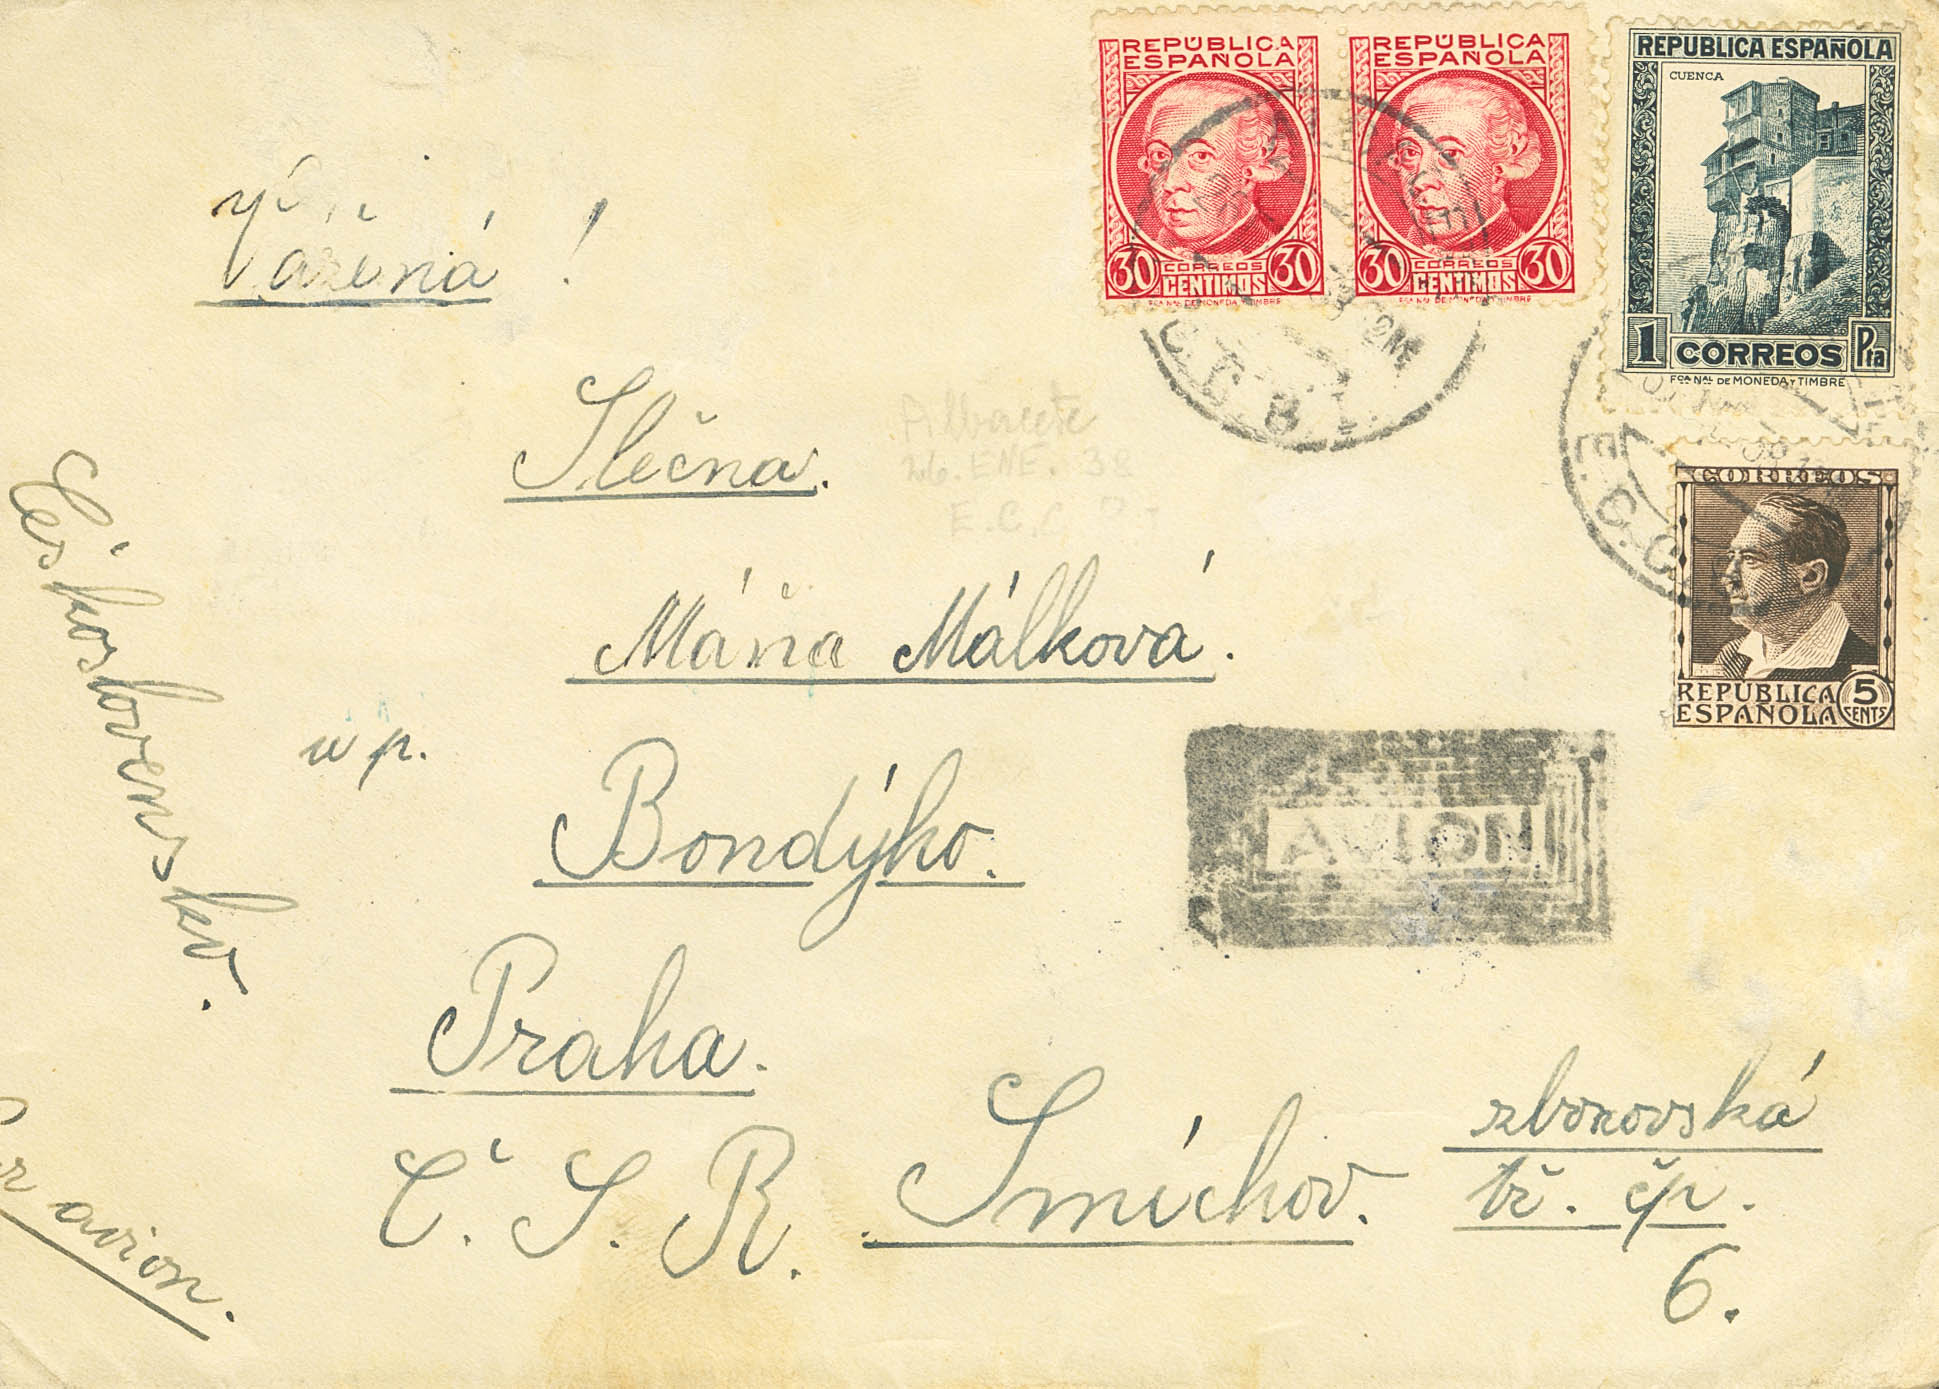 REPÚBLICA
ESPAÑOLA
30 CORREOS 30
CENTIMOS
FCA NAL DE MONEDA Y TIMBRE
REPÚBLICA
ESPAÑOLA
30 CORREOS 30
CENTIMOS
FCA NAL DE MONEDA Y TIMBRE
REPUBLICA ESPAÑOLA
CUENCA
1 CORREOS Pta
FCA NAL DE MONEDA Y TIMBRE
CORREOS
REPÚBLICA
ESPAÑOLA
5
CENTS
Vážená !
Slečna.
Albacete
26. ENE. 38
E. C. C.
Máňa Málková.
u p.
Bondýho.
AVION
Praha.
Č. S. R. Smíchov.
zborovská
tř. čp.
6.
Československo.
avion.